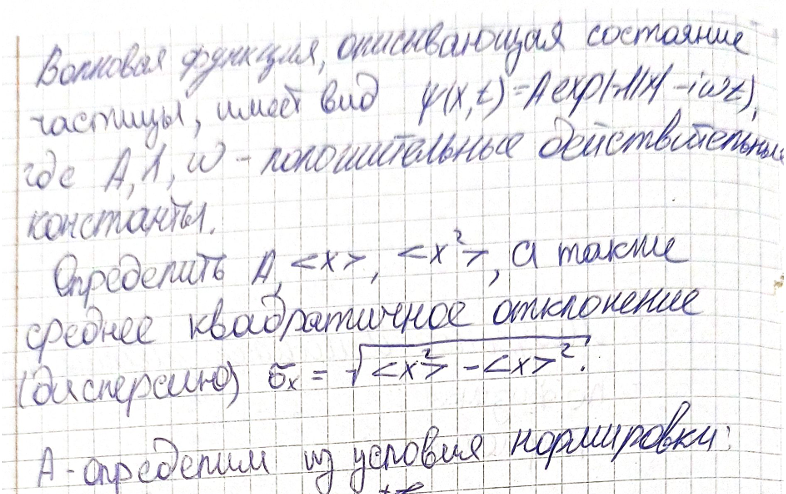 Волновая функция, описывающая состояние
частицы, имеет вид ψ(x,t)=A exp(-λ|x| -iωt),
где A, λ, ω - положительные действительные
константы.
Определить A, <x>, <x²>, а также
среднее квадратичное отклонение
(дисперсию) σₓ = √<x²> - <x>².
A - определим из условия нормировки: